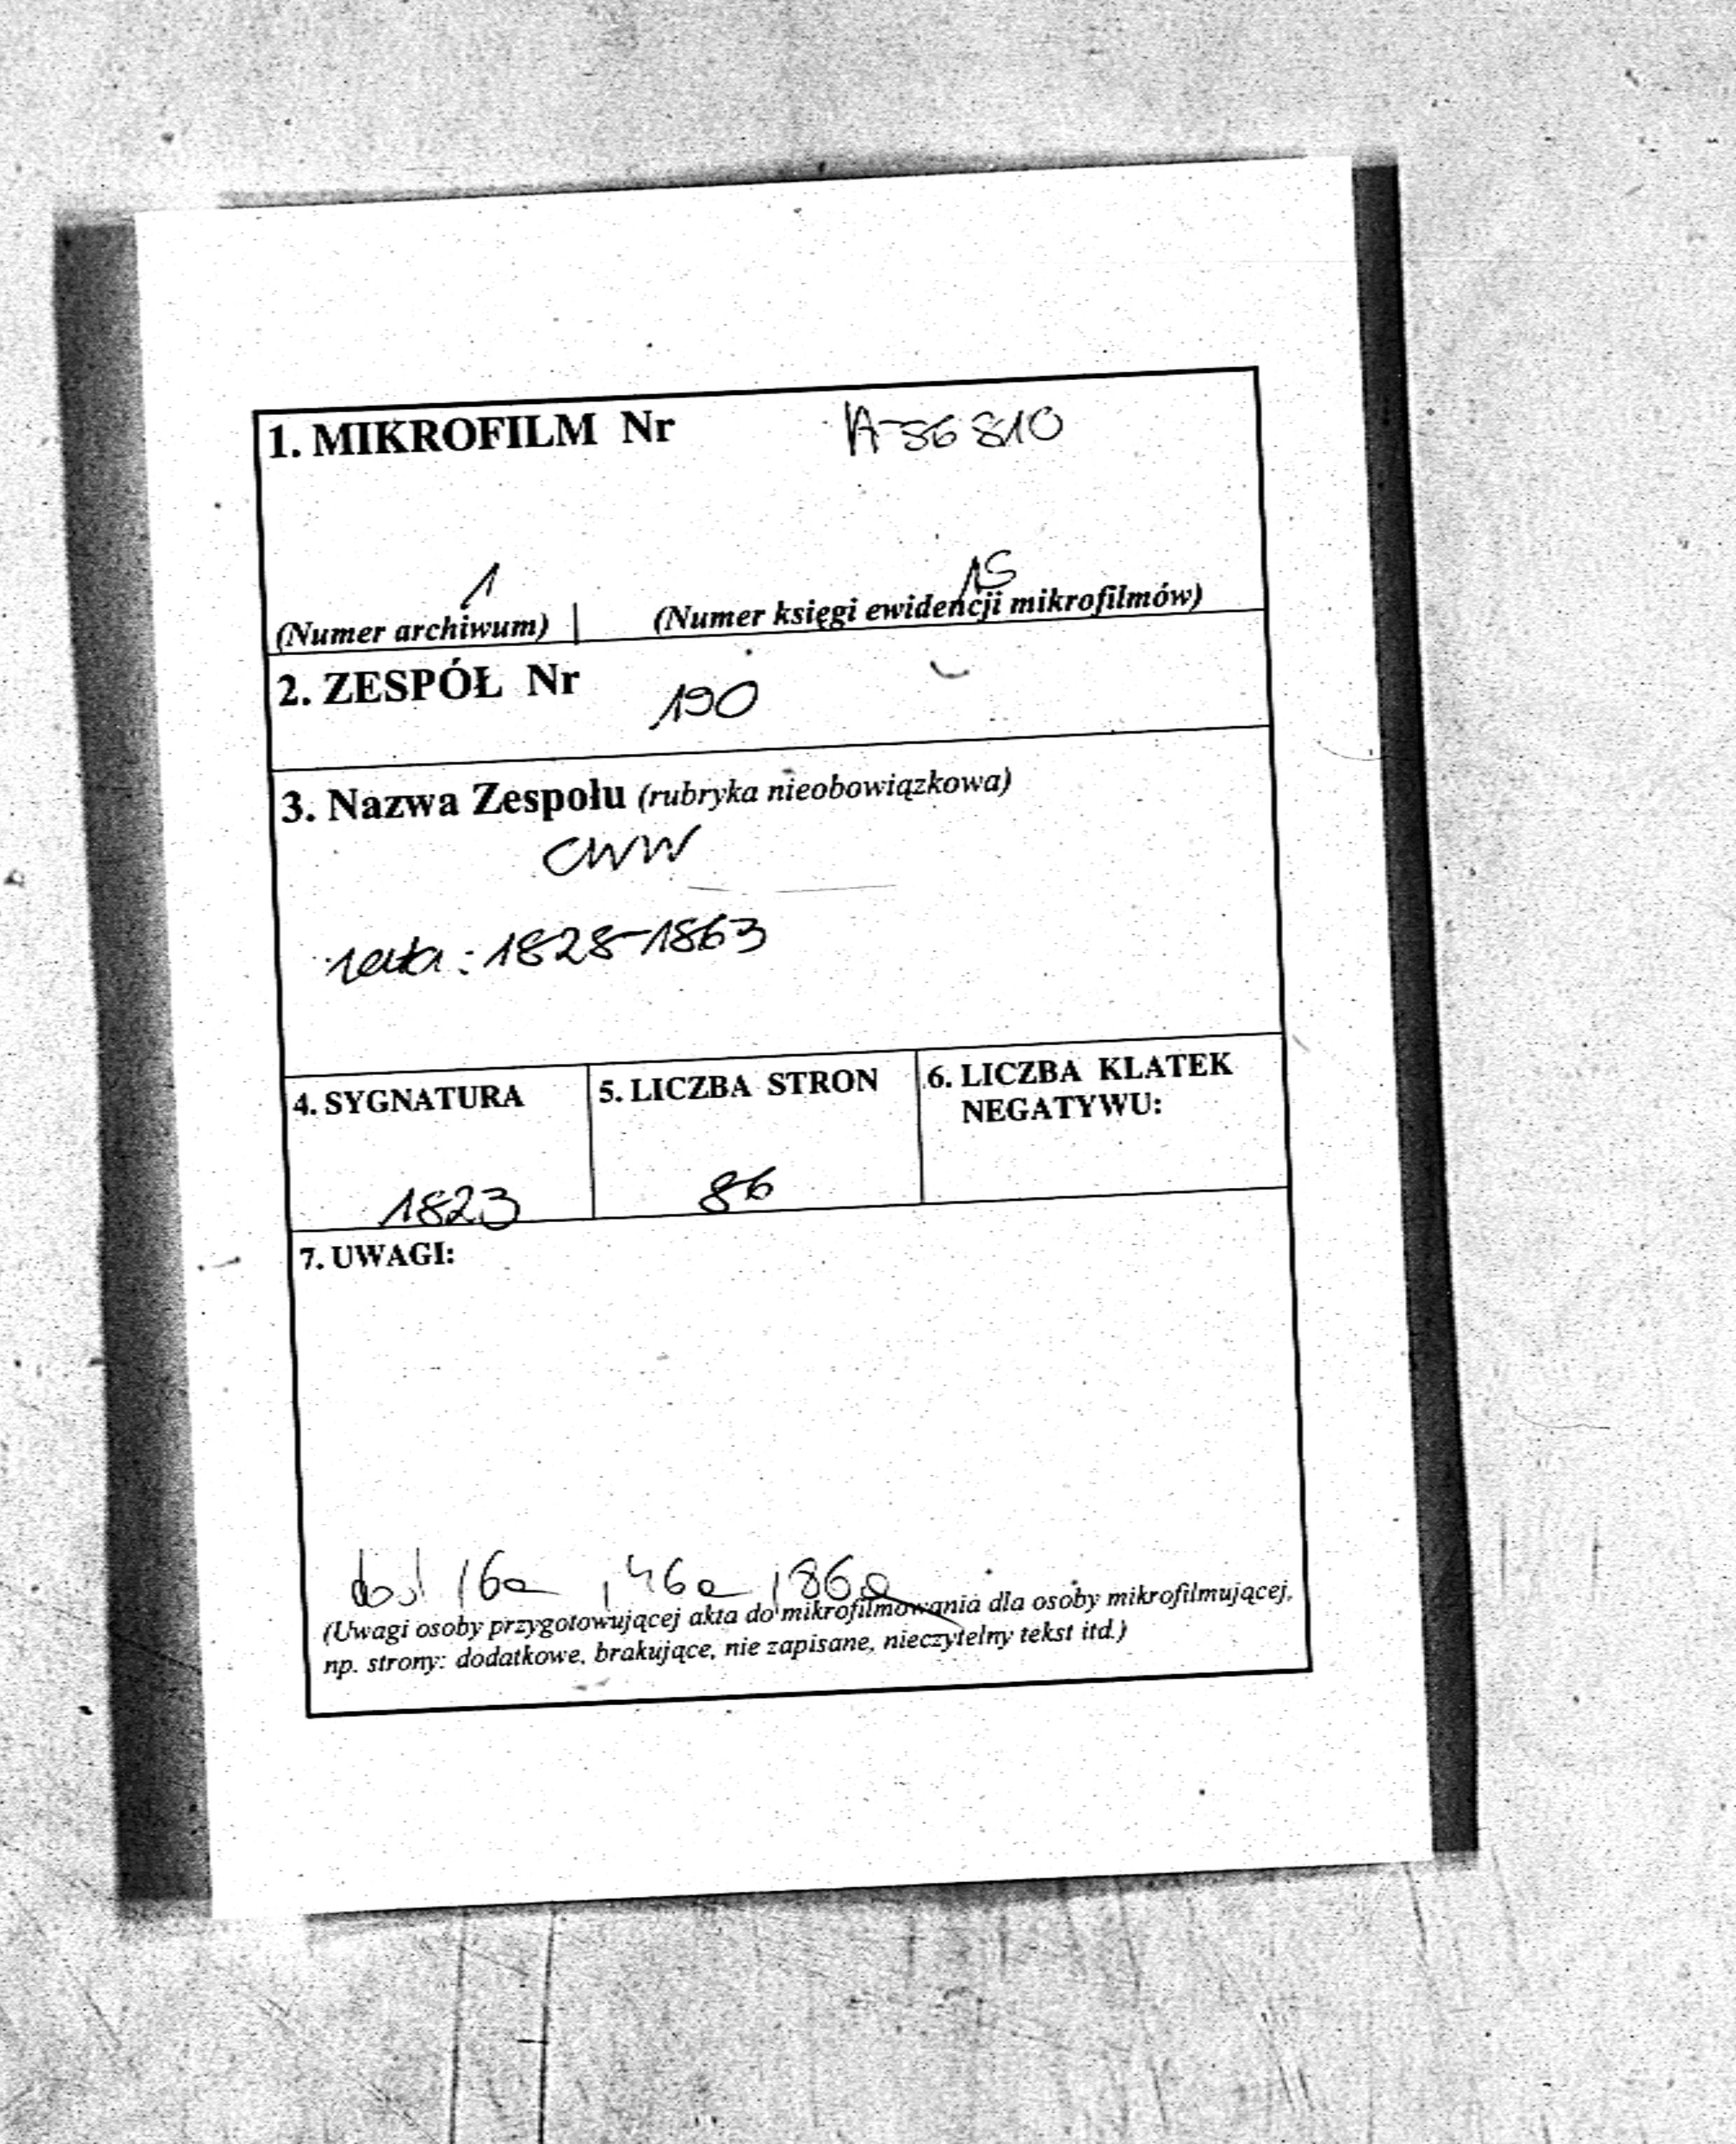 1. MIKROFILM Nr A-86810
1 15
(Numer archiwum) (Numer księgi ewidencji mikrofilmów)
2. ZESPÓŁ Nr 190
3. Nazwa Zespołu (rubryka nieobowiązkowa)
CWW
: 1828-1863
4. SYGNATURA 5. LICZBA STRON 6. LICZBA KLATEK
NEGATYWU:
1823 86
7. UWAGI:
16a, 46a, 86a
(Uwagi osoby przygotowującej akta do mikrofilmowania dla osoby mikrofilmującej,
np. strony: dodatkowe, brakujące, nie zapisane, nieczytelny tekst itd.)